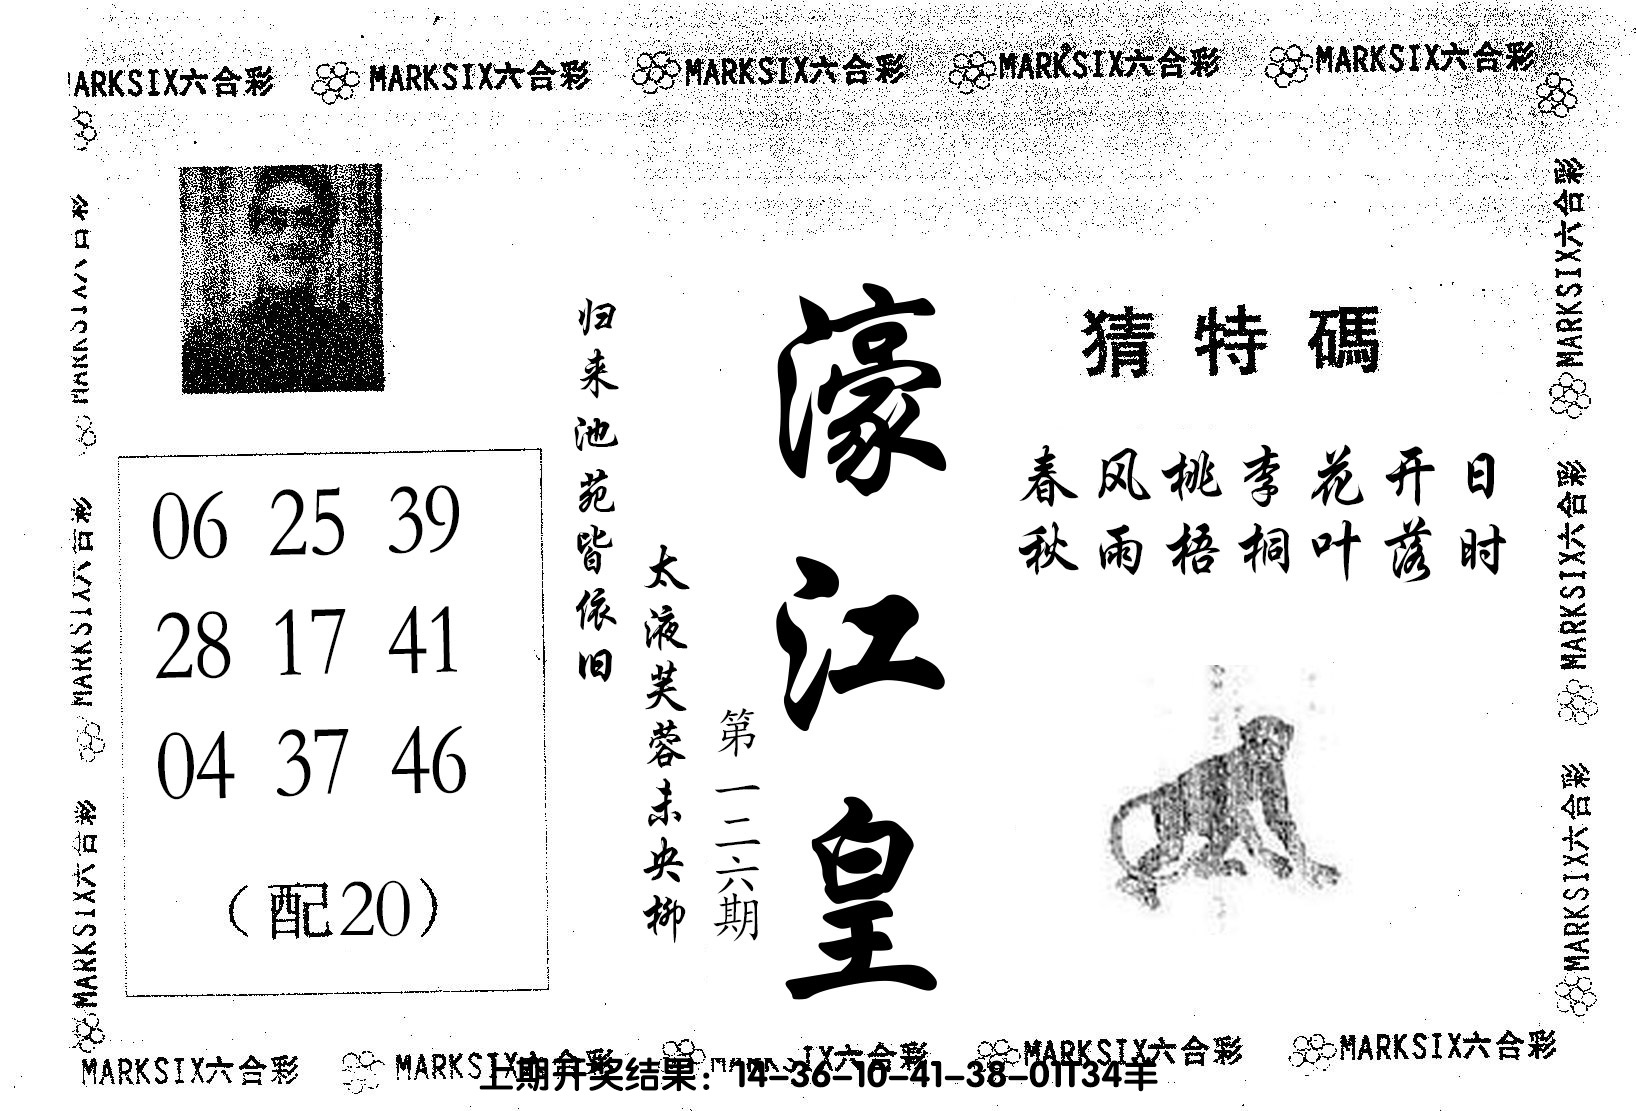 MARKSIX六合彩 MARKSIX六合彩 MARKSIX六合彩 MARKSIX六合彩
猜特碼
春风桃李花开日
秋雨梧桐叶落时
濠江皇
第一二六期
归来池苑皆依旧
太液芙蓉未央柳
06 25 39
28 17 41
04 37 46
(配20)
MARKSIX六合彩
MARKSIX六合彩
MARKSIX六合彩
MARKSIX六合彩
MARKSIX六合彩
MARKSIX六合彩 MARKSIX六合彩 MARKSIX六合彩 MARKSIX六合彩
上期开奖结果：14-36-10-41-38-01T34羊